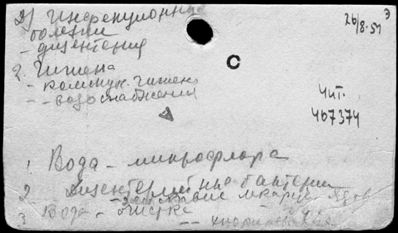 2) Инфекционные
болезни
- дизентерия
2. Гигиена
- коммун. гигиена
- - водоснабжения
26/8-59
Э
Чит.
467374
1. Вода - микрофлора
2 Дизентерийные бактерии
- действие ядов
3 Вода - очистка
- -